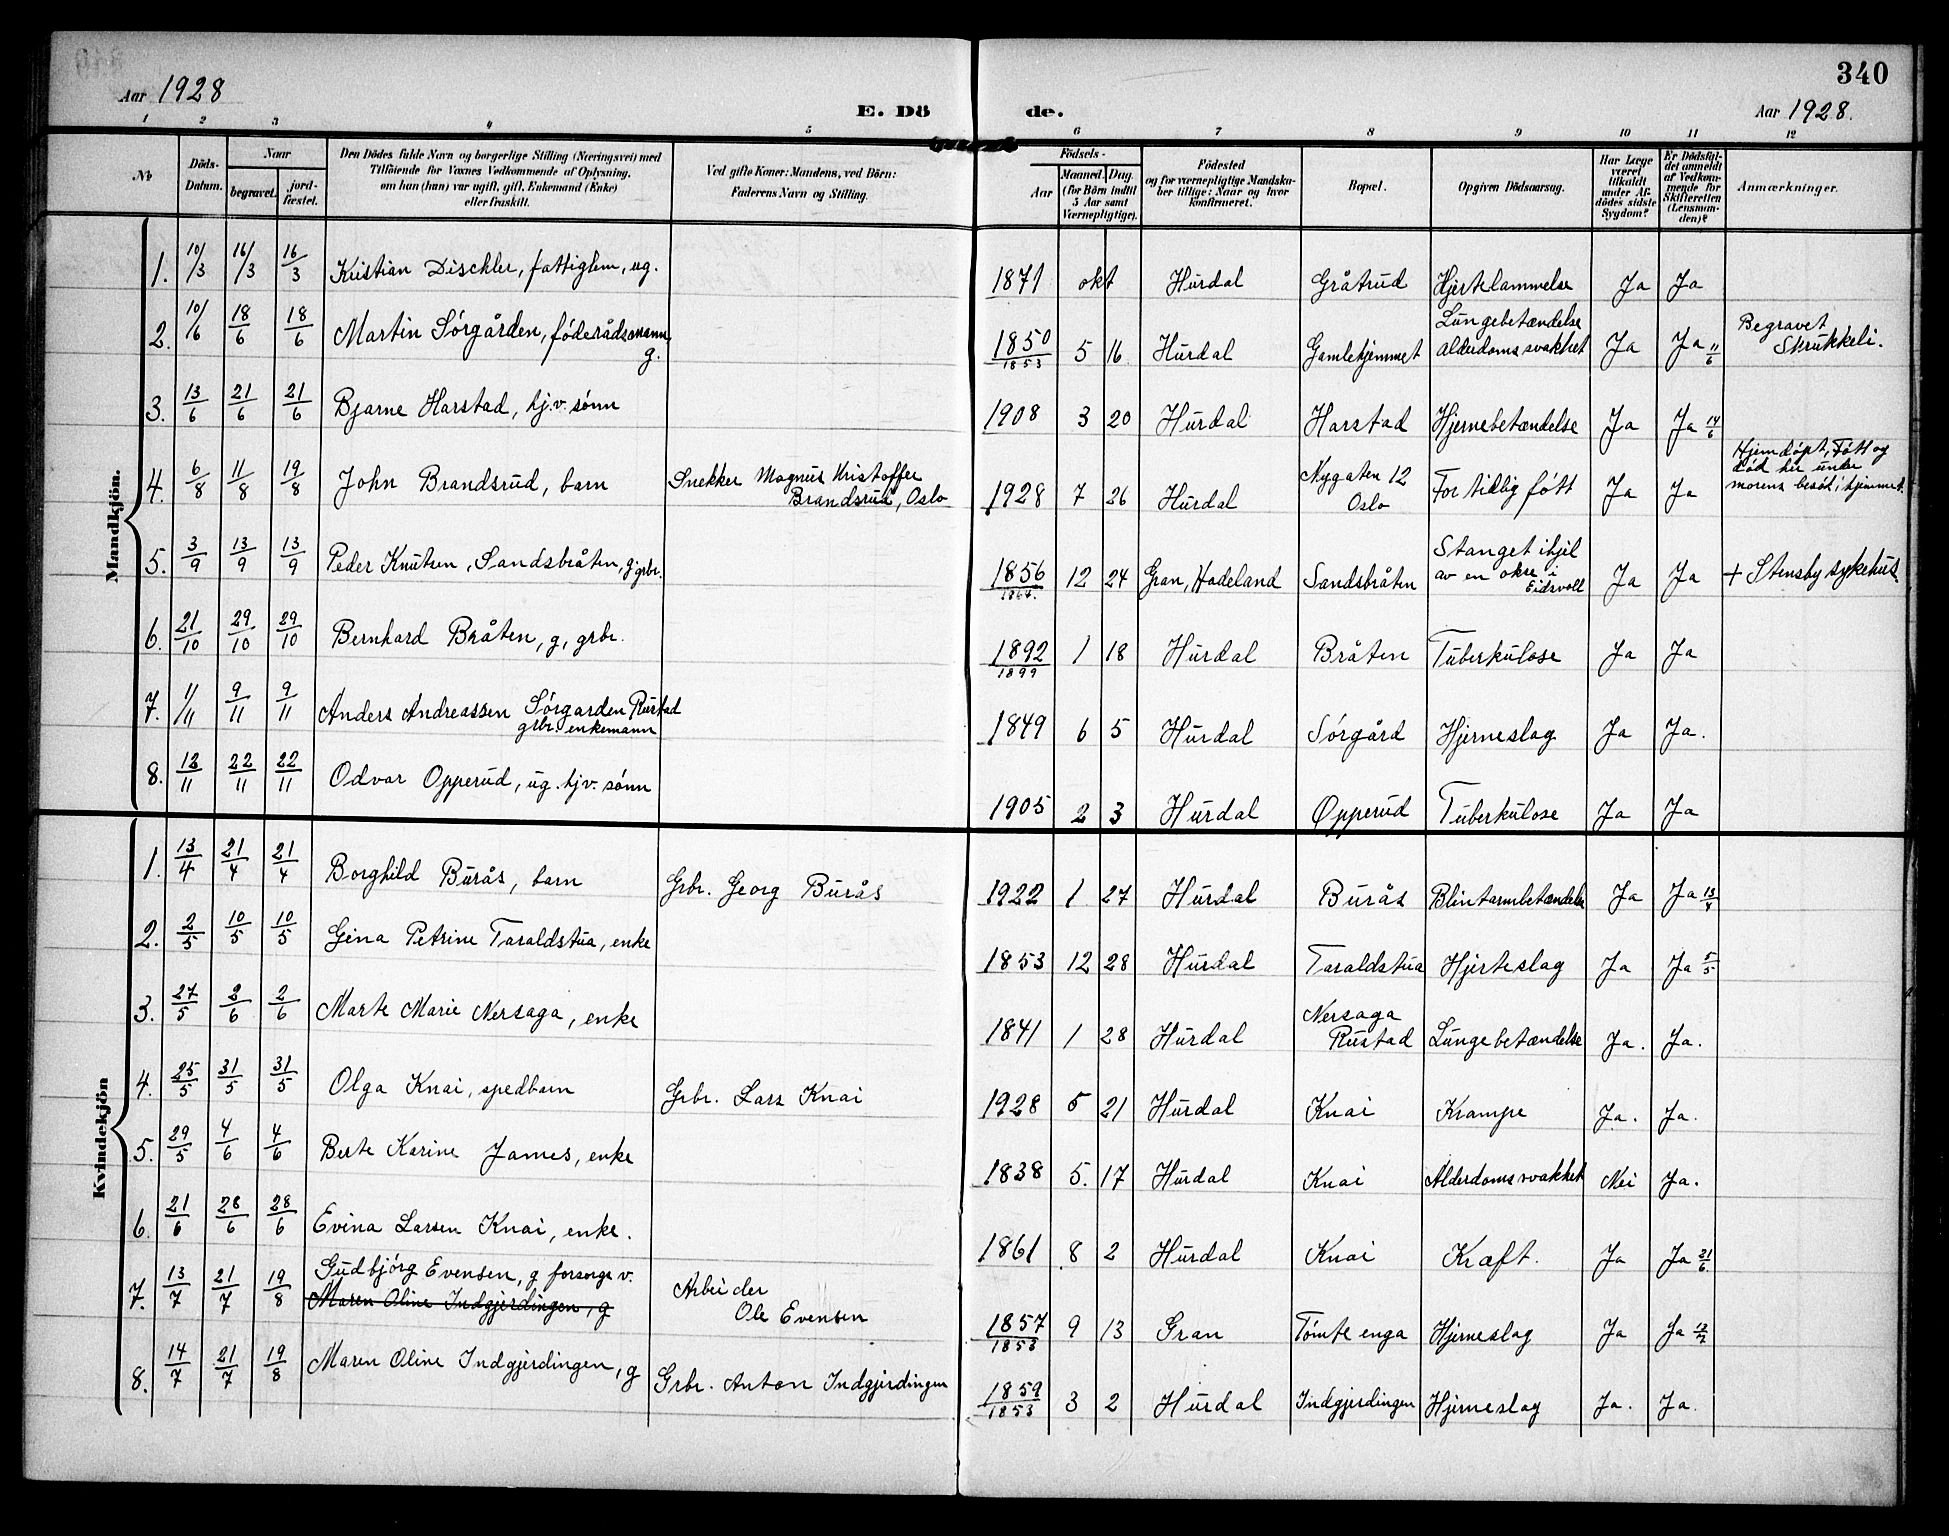 340
Aar 1928
E. Dö
de.
Aar 1928.
1 2 3 4 5 6 7 8 9 10 11 12
No
Döds-
Datum.
Naar
begravet.
jord-
fæstet.
Den Dödes fulde Navn og borgerlige Stilling (Næringsvei) med
Tilföiende for Voxnes Vedkommende af Oplysning,
om han (hun) var ugift, gift, Enkemand (Enke)
eller fraskilt.
Ved gifte Koner: Mandens, ved Börn:
Faderens Navn og Stilling.
Födsels-
Aar
Maaned. Dag.
(for Börn indtil
5 Aar samt
Værnepligtige).
Födested
og for værnepligtige Mandska-
ber tillige: Naar og hvor
konfirmeret.
Bopæl.
Opgiven Dödsaarsag.
Har Læge
været
tilkaldt
under Af-
dödes sidste
Sygdom?
Er Dödsfal-
det anmeldt
af Vedkom-
mende for
Skifteretten
(Lensman-
den)?
Anmærkninger.
Mandkjön.
1. 10/3 16/3 16/3 Kristian Dischler, fattiglem, ug. 1871 okt Hurdal Gråtrud Hjertelammelse Ja Ja
2. 10/6 18/6 18/6 Martin Sórgården, fóderådsmann, g. 1850/1853 5 16 Hurdal Gamlehjemmet Lungebetændelse
alderdomssvakhet Ja Ja 11/6 Begravet
Skrukkeli.
3. 13/6 21/6 21/6 Bjarne Harstad, hj.v. sónn 1908 3 20 Hurdal Harstad Hjernebetændelse Ja Ja 14/6
4. 6/8 11/8 19/8 John Brandsrud, barn Snekker Magnus Kristoffer
Brandsrud, Oslo 1928 7 26 Hurdal Nygaten 12
Oslo For tidlig fótt Ja Ja Hjemdópt, Fótt og
dód her under
morens besók i hjemmet.
5. 3/9 13/9 13/9 Peder Knutsen, Sandsbråten, g. grbr. 1856/1864. 12 24 Gran, Hadeland Sandsbråten Stanget ihjel
av en okse i
Eidsvoll Ja Ja + Stensby sykehus
6. 21/10 29/10 29/10 Bernhard Bråten, g, grbr. 1892/1899 1 18 Hurdal Bråten Tuberkulose Ja Ja
7. 1/11 9/11 9/11 Anders Andreassen Sórgarden Rustad
grbr. enkemann 1849 6 5 Hurdal Sórgård Hjerneslag Ja Ja.
8. 12/11 22/11 22/11 Odvar Opperud, ug. hjv. sónn 1905 2 3 Hurdal Opperud Tuberkulose Ja Ja
Kvindekjön
1. 13/4 21/4 21/4 Borghild Burås, barn Grbr. Georg Burås 1922 1 27 Hurdal Burås Blintarmbetændelse Ja Ja 13/4
2. 2/5 10/5 10/5 Gina Petrine Taraldstua, enke 1853 12 28 Hurdal Taraldstua Hjerteslag Ja Ja 5/5
3. 27/5 2/6 2/6 Marte Marie Nersaga, enke 1841 1 28 Hurdal Nersaga
Rustad Lungebetændelse Ja. Ja.
4. 25/5 31/5 31/5 Olga Knai, spedbarn Grbr. Lars Knai 1928 5 21 Hurdal Knai Krampe Ja. Ja.
5. 29/5 4/6 4/6 Berte Karine James, enke 1838 5. 17 Hurdal Knai Alderdomssvakhet Nei Ja.
6. 21/6 28/6 28/6 Evina Larsen Knai, enke. 1861 8 2 Hurdal Knai Kræft. Ja Ja 21/6
7. 13/7 21/7 19/8 Gudbjórg Evensen, g forsorge v.
Maren Oline Indgjerdingen, g Arbeider
Ole Evensen 1857/1853 9 13 Gran Tómte enga Hjerneslag Ja Ja 13/7
8. 14/7 21/7 19/8 Maren Oline Indgjerdingen, g Grbr. Anton Indgjerdingen 1859/1853 3 2 Hurdal Indgjerdingen Hjerneslag Ja. Ja.